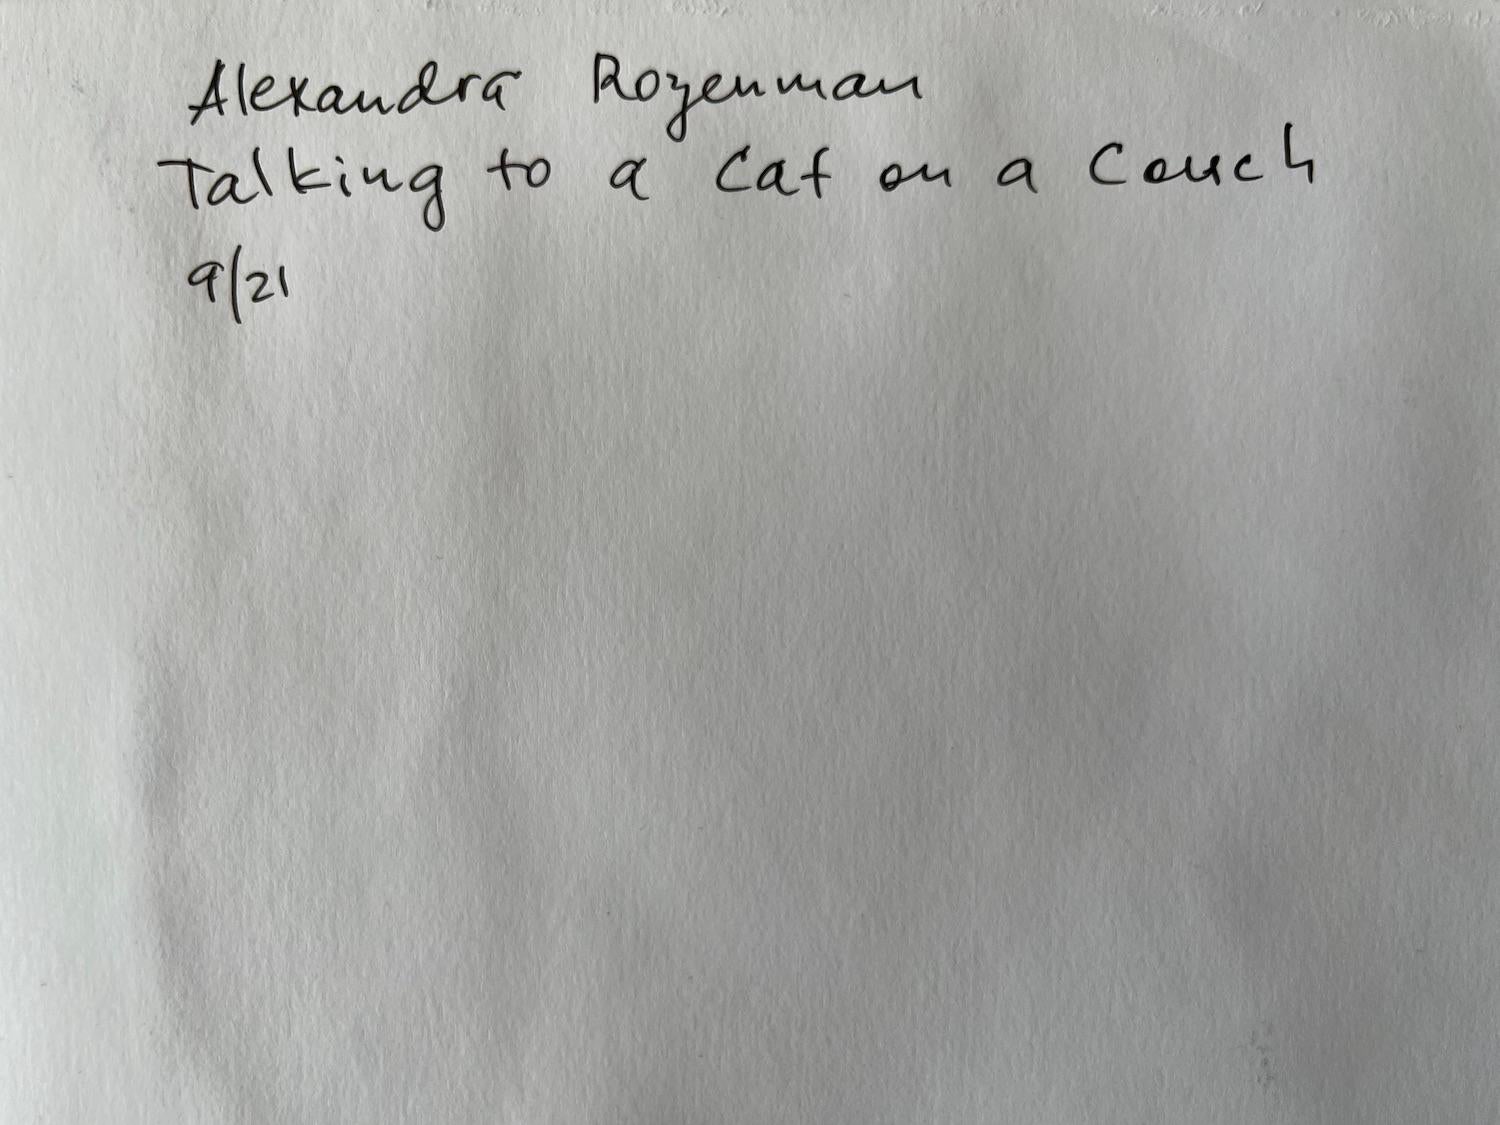 Alexandra Rozenman
Talking to a Cat on a Couch
9/21